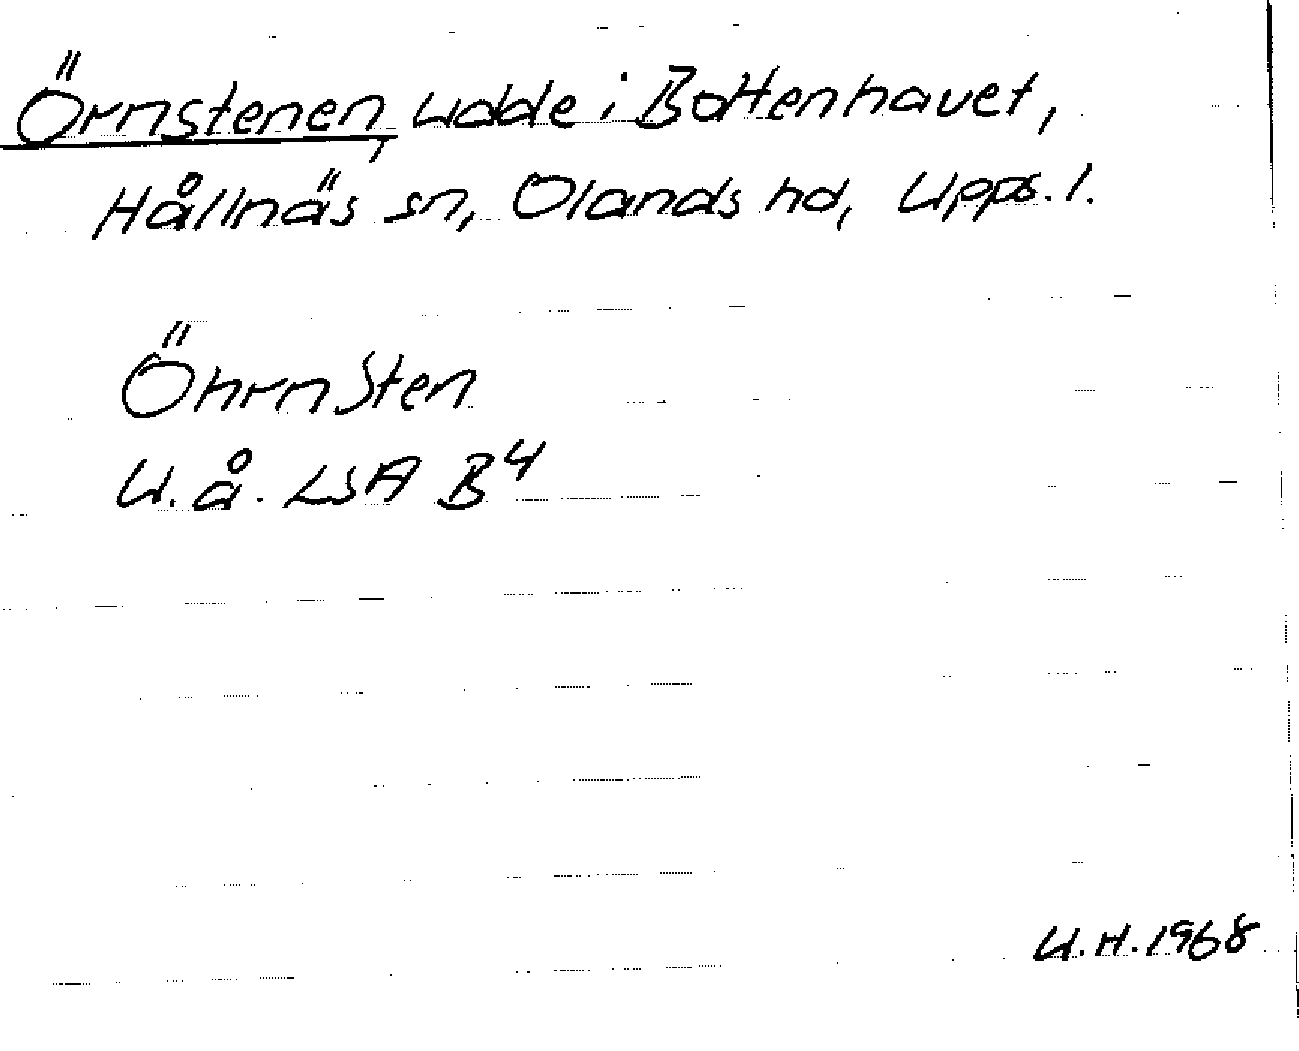 Örnstenen, udde i Bottenhavet,
Hållnäs sn, Olands hd, Upps. l.
Öhrn Sten
U. å. LSA B4
U. H. 1968